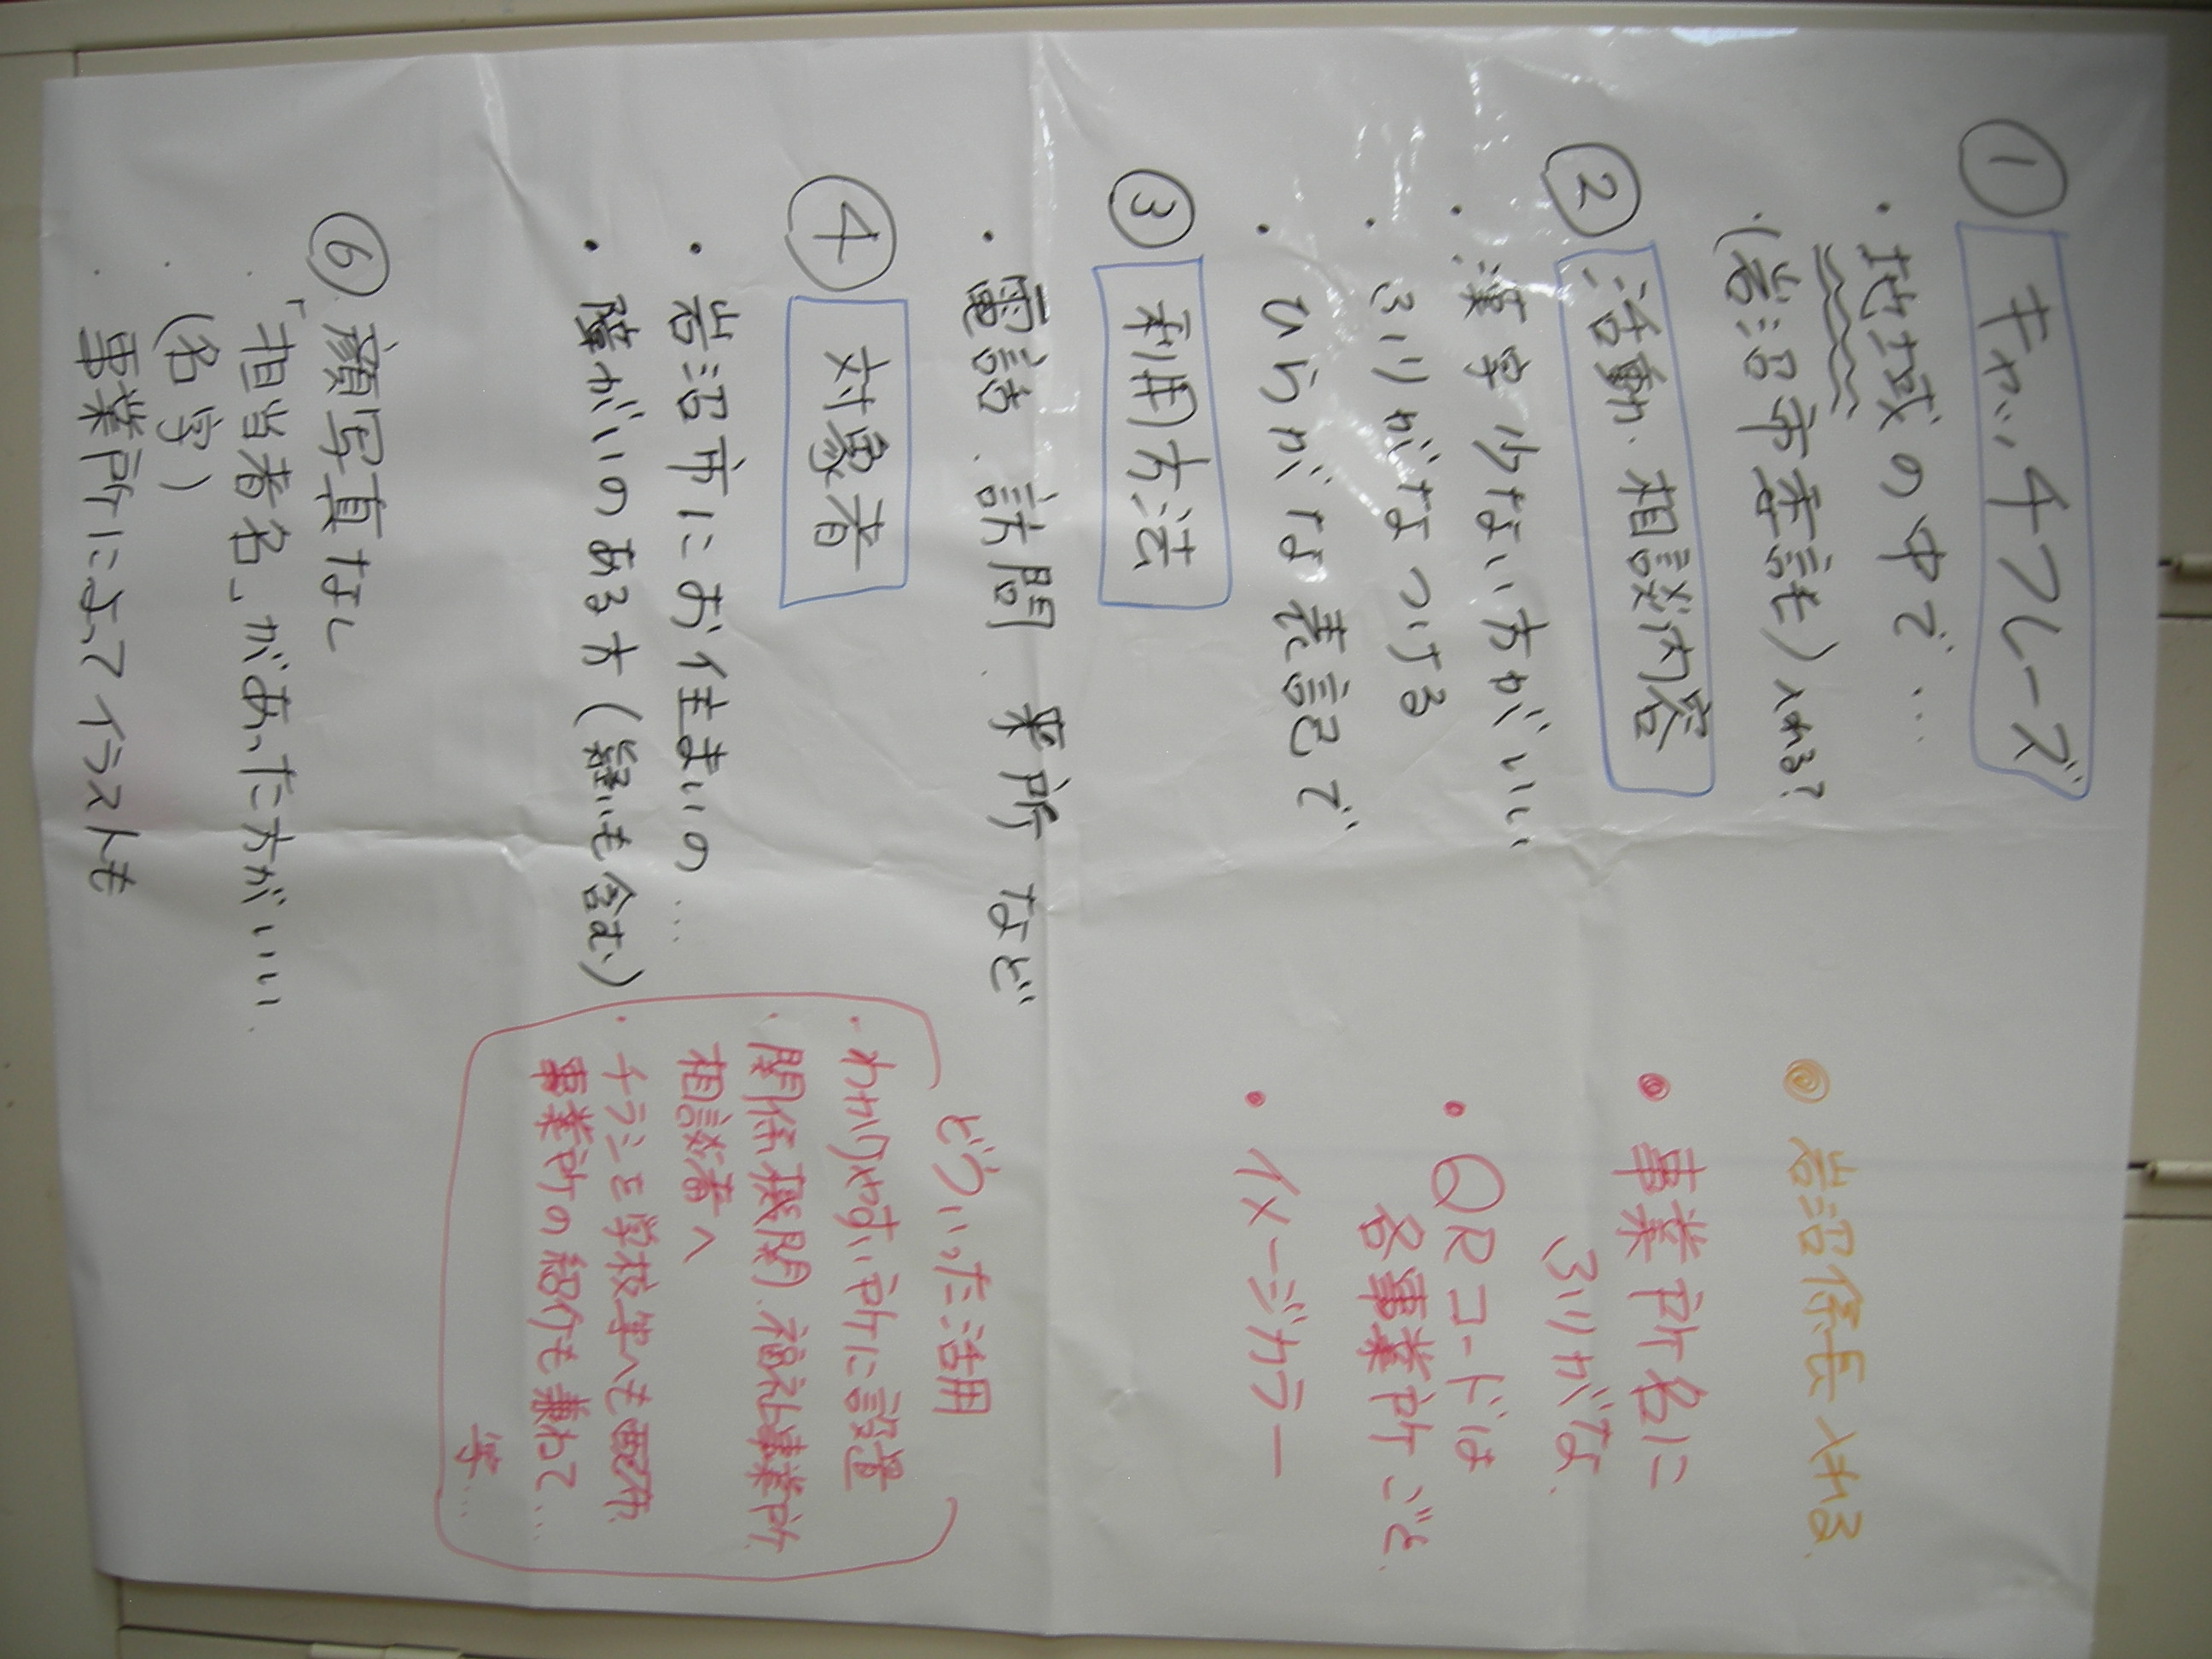 ① キャッチフレーズ
・地域の中で…
・(岩沼市委託)入れる?
② 活動・相談内容
・漢字少ない方がいい
・ふりがなつける
・ひらがな表記で
③ 利用方法
・電話・訪問・来所 など
④ 対象者
・岩沼市にお住まいの…
・障がいのある方(疑いも含む)
⑥ 顔写真なし
・「担当者名」があった方がいい
・(名字)
・事業所によってイラストも
◎ 岩沼係長入れる
● 事業所名に
ふりがな
・QRコードは
各事業所ごと
・イメージカラー
どういった活用
・わかりやすい所に設置
・関係機関、福祉事業所
相談者へ
・チラシを学校等へも配布
事業所の紹介も兼ねて…
等…